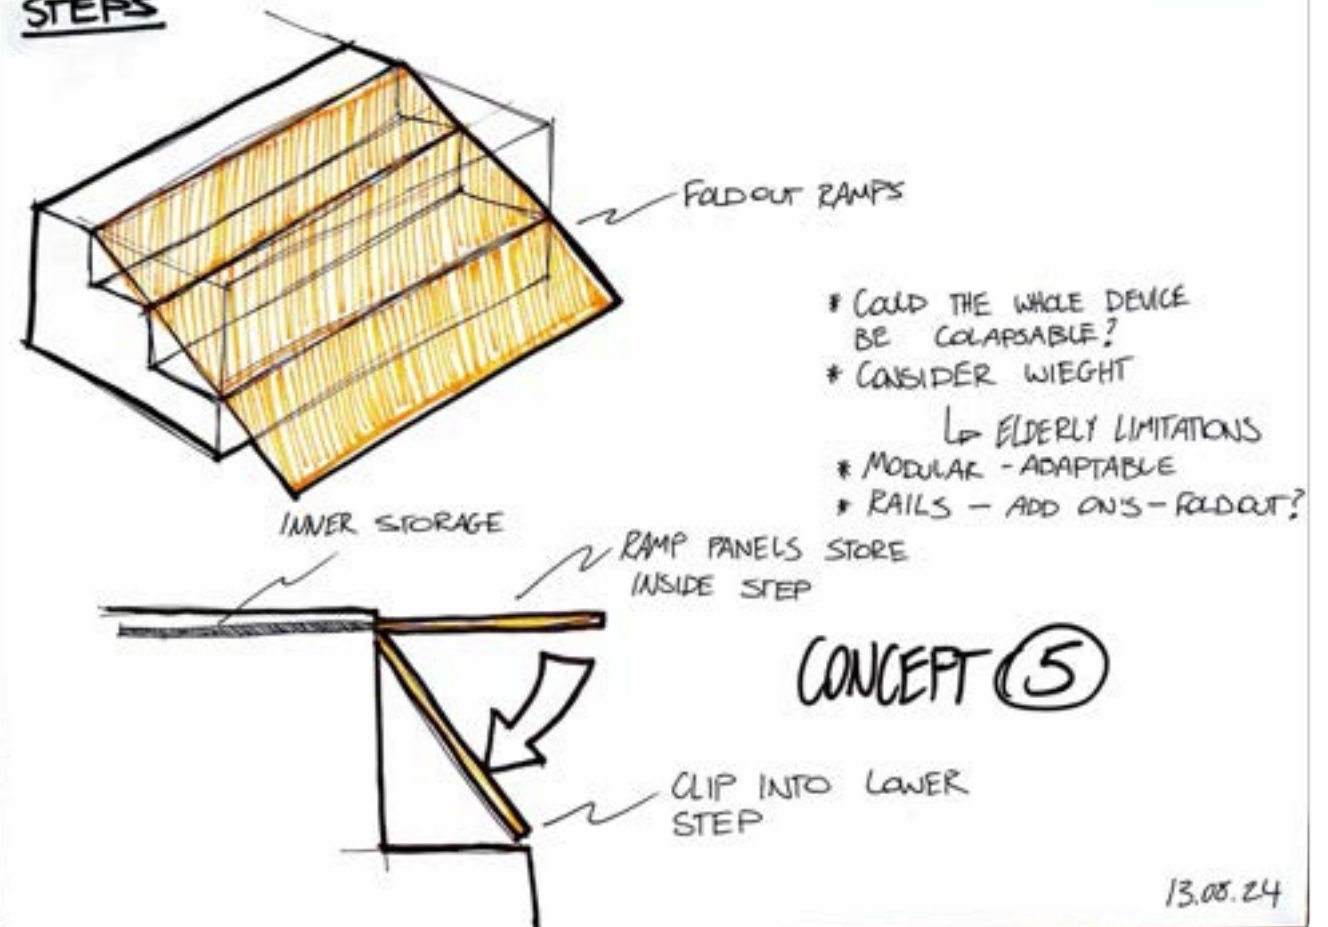 STEPS
FOLDOUT RAMPS
* COULD THE WHOLE DEVICE
BE COLAPSABLE?
* CONSIDER WIEGHT
ELDERLY LIMITATIONS
* MODULAR - ADAPTABLE
* RAILS - ADD ON'S - FOLDOUT?
INNER STORAGE
RAMP PANELS STORE
INSIDE STEP
CONCEPT 5
CLIP INTO LOWER
STEP
13.08.24